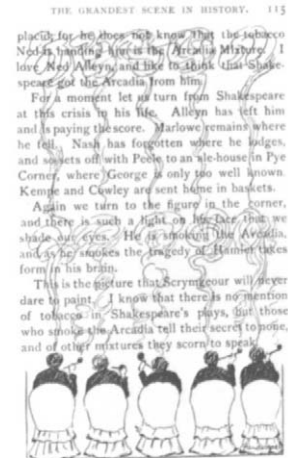 THE GRANDEST SCENE IN HISTORY. 113
placid, for he does not know that the tobacco
Ned is handing him is the Arcadia Mixture. I
love Ned Alleyn, and like to think that Shake-
speare got the Arcadia from him.
For a moment let us turn from Shakespeare
at this crisis in his life. Alleyn has left him
and is paying the score. Marlowe remains where
he fell. Nash has forgotten where he lodges,
and so sets off with Peele to an ale-house in Pye
Corner, where George is only too well known.
Kempe and Cowley are sent home in baskets.
Again we turn to the figure in the corner,
and there is such a light on his face that we
shade our eyes. He is smoking the Arcadia,
and as he smokes the tragedy of Hamlet takes
form in his brain.
This is the picture that Scrymgeour will never
dare to paint. I know that there is no mention
of tobacco in Shakespeare's plays, but those
who smoke the Arcadia tell their secret to none,
and of other mixtures they scorn to speak.